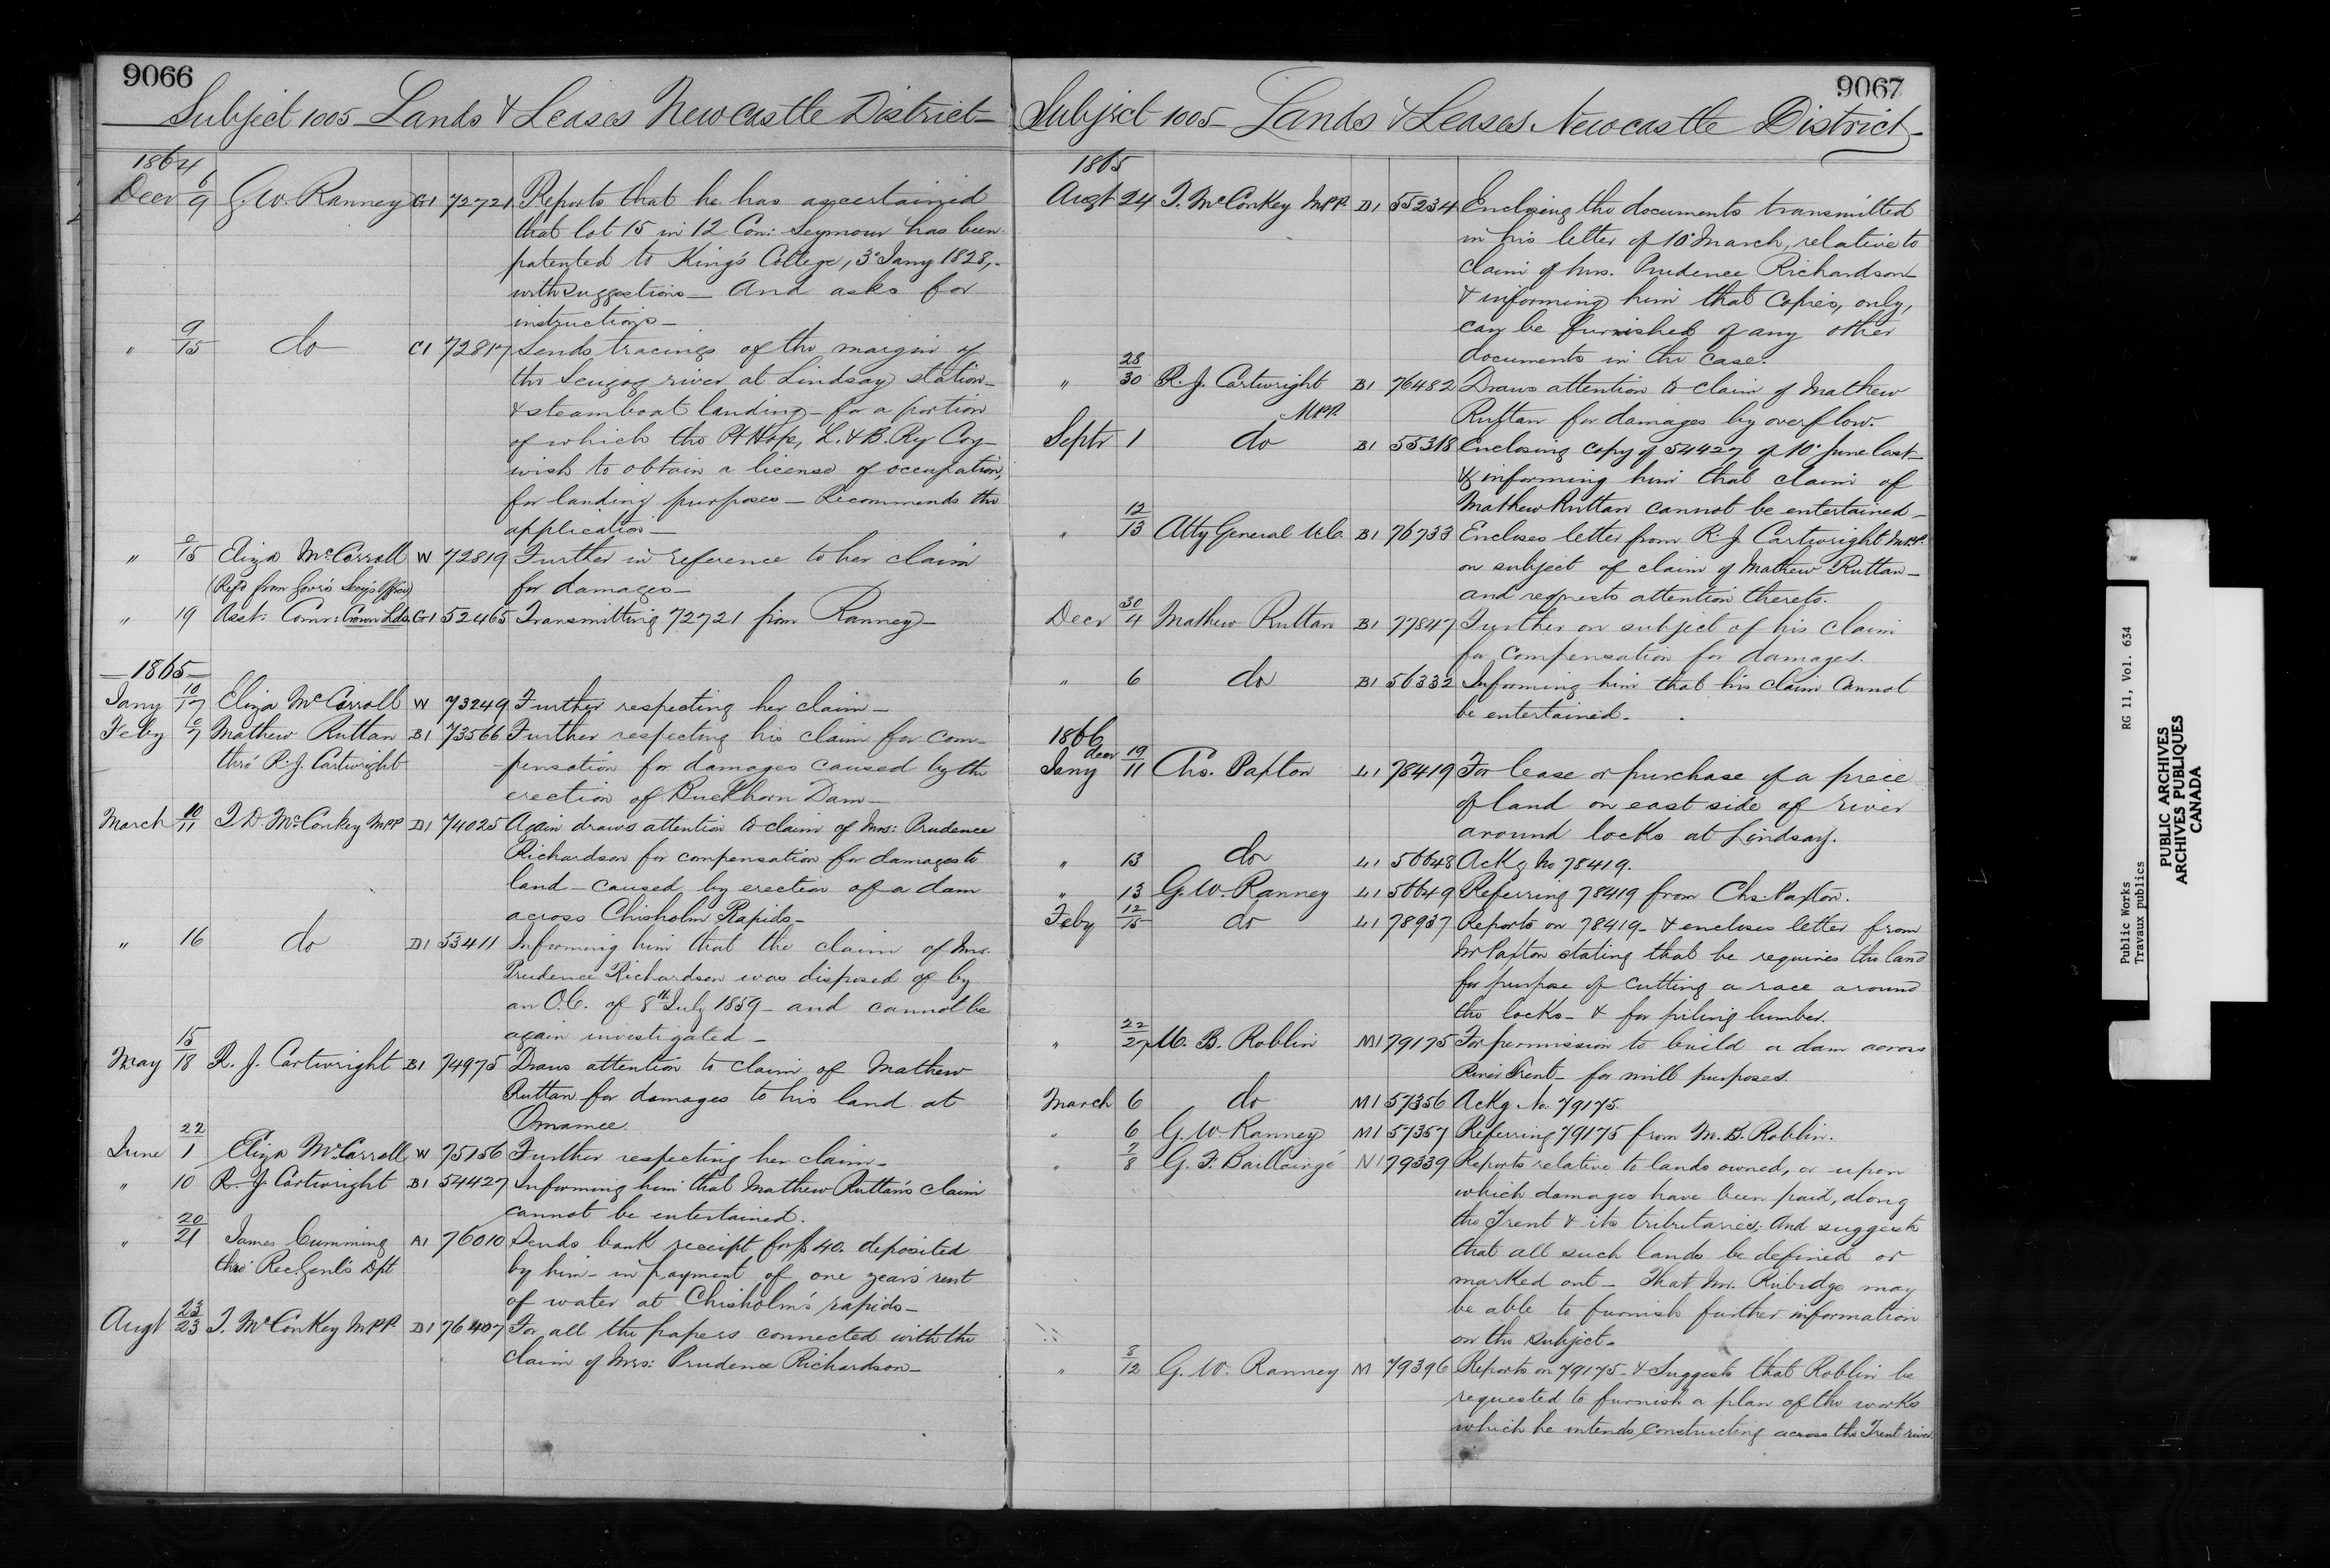 9066
Subject 1005 - Lands & Leases Newcastle District -
1864
Decr 6/9 G. W. Ranney G1 72721 Reports that he has ascertained
that lot 15 in 12 Con: Seymour has been
patented to King's College, 3d Jany 1828, -
with suggestions - And asks for
instructions -
" 9/15 do C1 72817 Sends tracings of the margin of
the Scugog river at Lindsay station -
& steamboat landing - for a portion
of which the Pt Hope, L. & B. Ry Coy -
wish to obtain a license of occupation,
for landing purposes - Recommends the
application -
" 9/15 Eliza McCarroll W 72819 Further in reference to her claim
(Refd from Govr's Secy's Office) for damages -
" 19 Asst: Comr: Crown Lds. G1 52465 Transmitting 72721 from Ranney -
- 1865 -
Jany 10/17 Eliza McCarroll W 73249 Further respecting her claim -
Feby 6/7 Mathew Ruttan B1 73566 Further respecting his claim for com-
thro' R. J. Cartwright -pensation for damages caused by the
erection of Buckhorn Dam -
March 10/11 T. D. McConkey MPP D1 74025 Again draws attention to claim of Mrs: Prudence
Richardson for compensation for damages to
land - caused by erection of a dam
across Chisholm Rapids -
" 16 do D1 53411 Informing him that the claim of Mrs.
Prudence Richardson was disposed of by
an O.C. of 8th July 1859 - and cannot be
again investigated -
May 15/18 R. J. Cartwright B1 74975 Draws attention to claim of Mathew
Ruttan for damages to his land at
Omamee
June 22/1 Eliza McCarroll W 75156 Further respecting her claim -
" 10 R. J. Cartwright B1 54427 Informing him that Mathew Ruttan's claim
cannot be entertained.
" 20/21 James Cumming A1 76010 Sends bank receipt for $40. deposited
thro' Rec. Genl's Dpt by him - in payment of one year's rent
of water at Chisholm's rapids -
Augt 23/23 T. McConkey MPP. D1 76407 For all the papers connected with the
claim of Mrs: Prudence Richardson -
9067
Subject 1005 - Lands & Leases Newcastle District -
1865
Augt 24 T. McConkey MPP. D1 55234 Enclosing the documents transmitted
in his letter of 10th March, relative to
claim of Mrs. Prudence Richardson -
& informing him that copies, only,
can be furnished of any other
documents in the case.
" 28/30 R. J. Cartwright B1 76482 Draws attention to claim of Mathew
MPP. Ruttan for damages by overflow.
Septr 1 do B1 55318 Enclosing copy of 54427 of 10th June last -
& informing him that claim of
Mathew Ruttan cannot be entertained -
" 12/13 Atty General U.C. B1 76733 Encloses letter from R. J. Cartwright MPP.
on subject of claim of Mathew Ruttan -
and requests attention thereto.
Decr 30/4 Mathew Ruttan B1 77847 Further on subject of his claim
for compensation for damages.
" 6 do B1 56332 Informing him that his claim cannot
be entertained -
1866
decr 19
Jany 11 Chs. Paxton L1 78419 For lease or purchase of a piece
of land on east side of river
around locks at Lindsay.
" 13 do L1 56648 Ackg No 78419.
" 13 G. W. Ranney L1 56649 Referring 78419 from Chs. Paxton.
Feby 12/15 do L1 78937 Reports on 78419 - & encloses letter from
Mr Paxton stating that he requires the land
for purpose of cutting a race around
the locks - & for piling lumber.
" 22/27 M. B. Roblin M1 79175 For permission to build a dam across
River Trent - for mill purposes.
March 6 do M1 57356 Ackg No. 79175.
" 6 G. W. Ranney M1 57357 Referring 79175 from M. B. Roblin.
" 7/8 G. F. Baillairgé N1 79339 Reports relative to lands owned, or upon
which damages have been paid, along
the Trent & its tributaries; And suggests
that all such lands be defined or
marked out - That Mr. Rubidge may
be able to furnish further information
on the subject -
" 8/12 G. W. Ranney M 79396 Reports on 79175 - & Suggests that Roblin be
requested to furnish a plan of the works
which he intends constructing across the Trent river
Public Works RG 11, Vol. 634
Travaux publics
PUBLIC ARCHIVES
ARCHIVES PUBLIQUES
CANADA